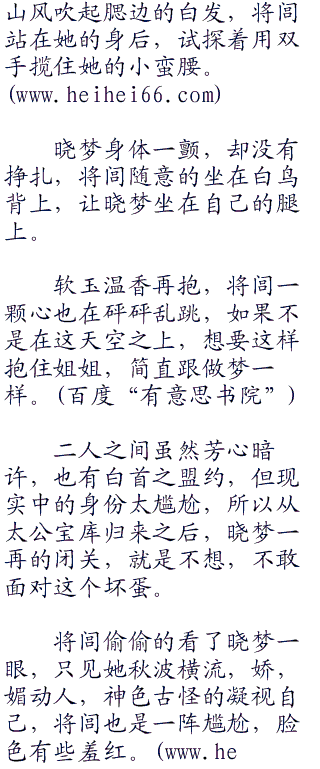 山风吹起腮边的白发，将闾
站在她的身后，试探着用双
手揽住她的小蛮腰。
(www.heihei66.com)
晓梦身体一颤，却没有
挣扎，将闾随意的坐在白鸟
背上，让晓梦坐在自己的腿
上。
软玉温香再抱，将闾一
颗心也在砰砰乱跳，如果不
是在这天空之上，想要这样
抱住姐姐，简直跟做梦一
样。(百度“有意思书院”)
二人之间虽然芳心暗
许，也有白首之盟约，但现
实中的身份太尴尬，所以从
太公宝库归来之后，晓梦一
再的闭关，就是不想，不敢
面对这个坏蛋。
将闾偷偷的看了晓梦一
眼，只见她秋波横流，娇，
媚动人，神色古怪的凝视自
己，将闾也是一阵尴尬，脸
色有些羞红。(www.he